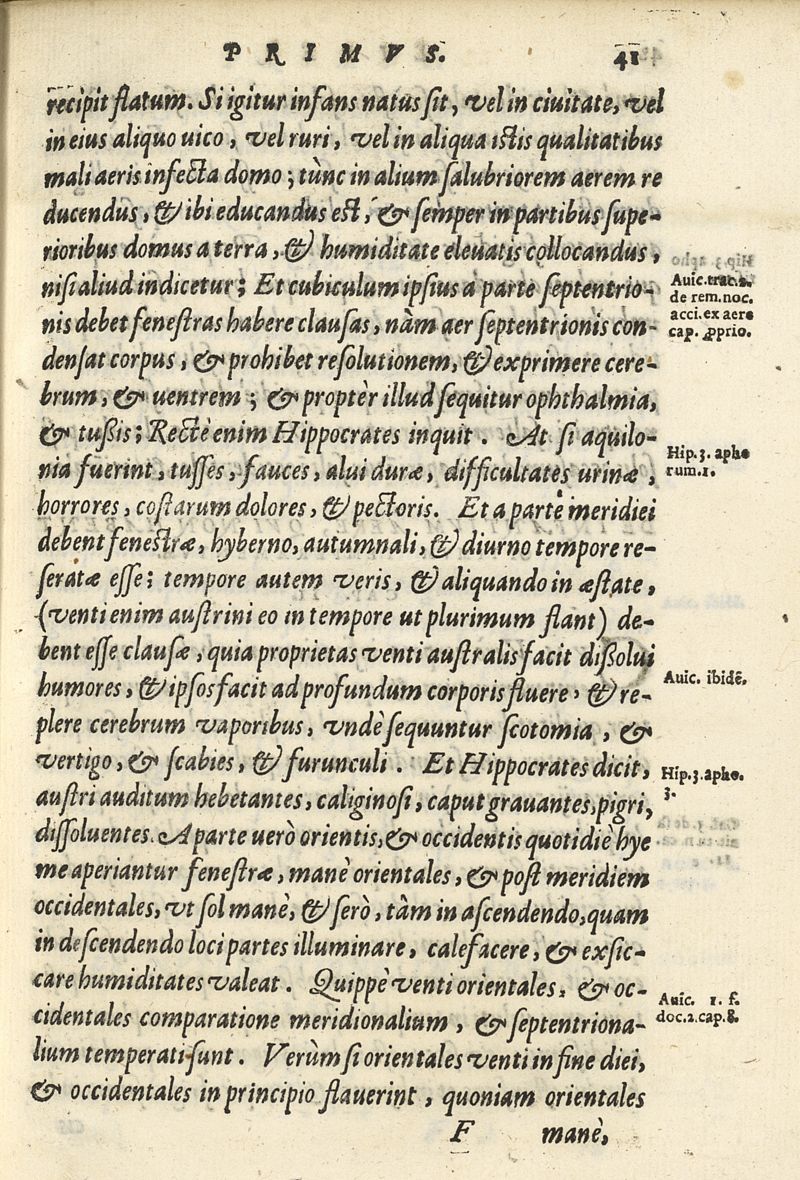 PRIMVS. 41
recipit flatum. Si igitur infans natus sit, vel in ciuitate, vel
in eius aliquo uico, vel ruri, vel in aliqua istis qualitatibus
mali aeris infecta domo; tùnc in alium salubriorem aerem re
ducendus, & ibi educandus est, & semper in partibus supe-
rioribus domus a terra, & humiditate eleuatis collocandus,
nisi aliud indicetur; Et cubiculum ipsius a parte septentrio-
Auic. trac. 2.
de rem. noc.
acci. ex aere
cap. ꝓprio.
nis debet fenestras habere clausas, nàm aer septentrionis con-
densat corpus, & prohibet resolutionem, & exprimere cere-
brum, & uentrem; & proptèr illud sequitur ophthalmia,
& tußis; Rectè enim Hippocrates inquit. At si aquilo-
Hip. 3. apho
rum. 1.
nia fuerint, tusses, fauces, alui duræ, difficultates urinæ,
horrores, costarum dolores, & pectoris. Et a parte meridiei
debent fenestræ, hyberno, autumnali, & diurno tempore re-
seratæ esse; tempore autem veris, & aliquando in æstate,
(venti enim austrini eo in tempore ut plurimum flant) de-
bent esse clausæ, quia proprietas venti australis facit dißolui
Auic. ibidē.
humores, & ipsos facit ad profundum corporis fluere, & re-
plere cerebrum vaporibus, vndè sequuntur scotomia, &
vertigo, & scabies, & furunculi. Et Hippocrates dicit,
Hip. 3. apho.
3.
austri auditum hebetantes, caliginosi, caput grauantes, pigri,
dissoluentes. A parte uerò orientis, & occidentis quotidiè hye
me aperiantur fenestræ, manè orientales, & post meridiem
occidentales, vt sol manè, & serò, tàm in ascendendo, quam
in descendendo loci partes illuminare, calefacere, & exsic-
care humiditates valeat. Quippè venti orientales, & oc-
Auic. 1. f.
doc. 2. cap. 8.
cidentales comparatione meridionalium, & septentriona-
lium temperati sunt. Verùm si orientales venti in fine diei,
& occidentales in principio flauerint, quoniam orientales
F manè,